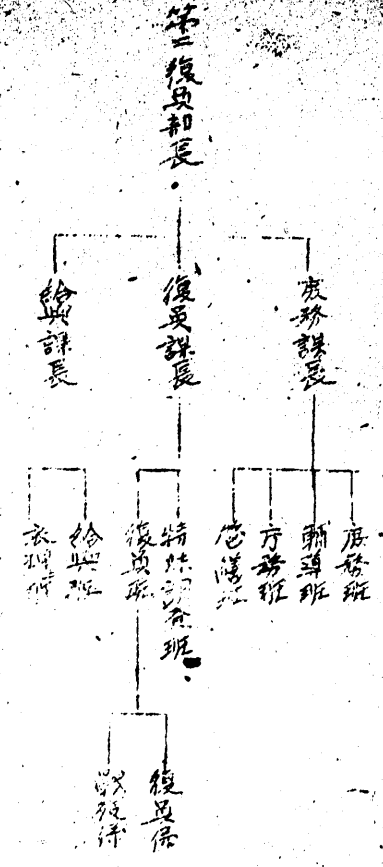 第二復員部長
庶務課長
復員課長
給與課長
庶務班
輔導班
庁務班
営繕班
特殊調査班
復員班
給與班
衣糧班
復員係
戦死係